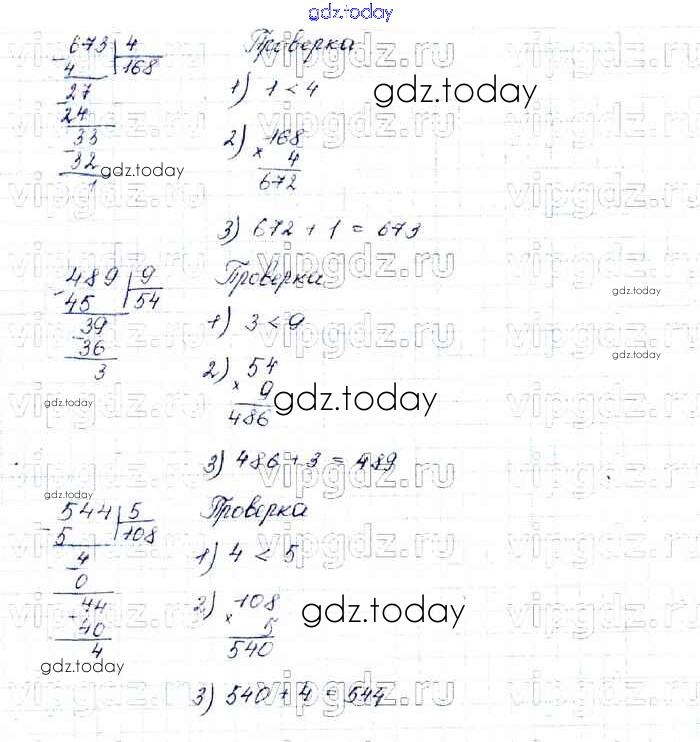 gdz.today
673 4 Проверка
- 4 168
27 1) 1 < 4 gdz.today
- 24
33 2) 168
- 32 × 4
gdz.today 672
1
3) 672 + 1 = 673
489 9 Проверка
- 45 54 gdz.today
39 1) 3 < 9
- 36
3 2) 54 gdz.today
× 9
gdz.today 486 gdz.today
3) 486 + 3 = 489
544 5 Проверка
- 5 108
4 1) 4 < 5
- 0
44 2) 108 gdz.today
- 40 × 5
4 540
gdz.today
3) 540 + 4 = 544
vipgdz.ru